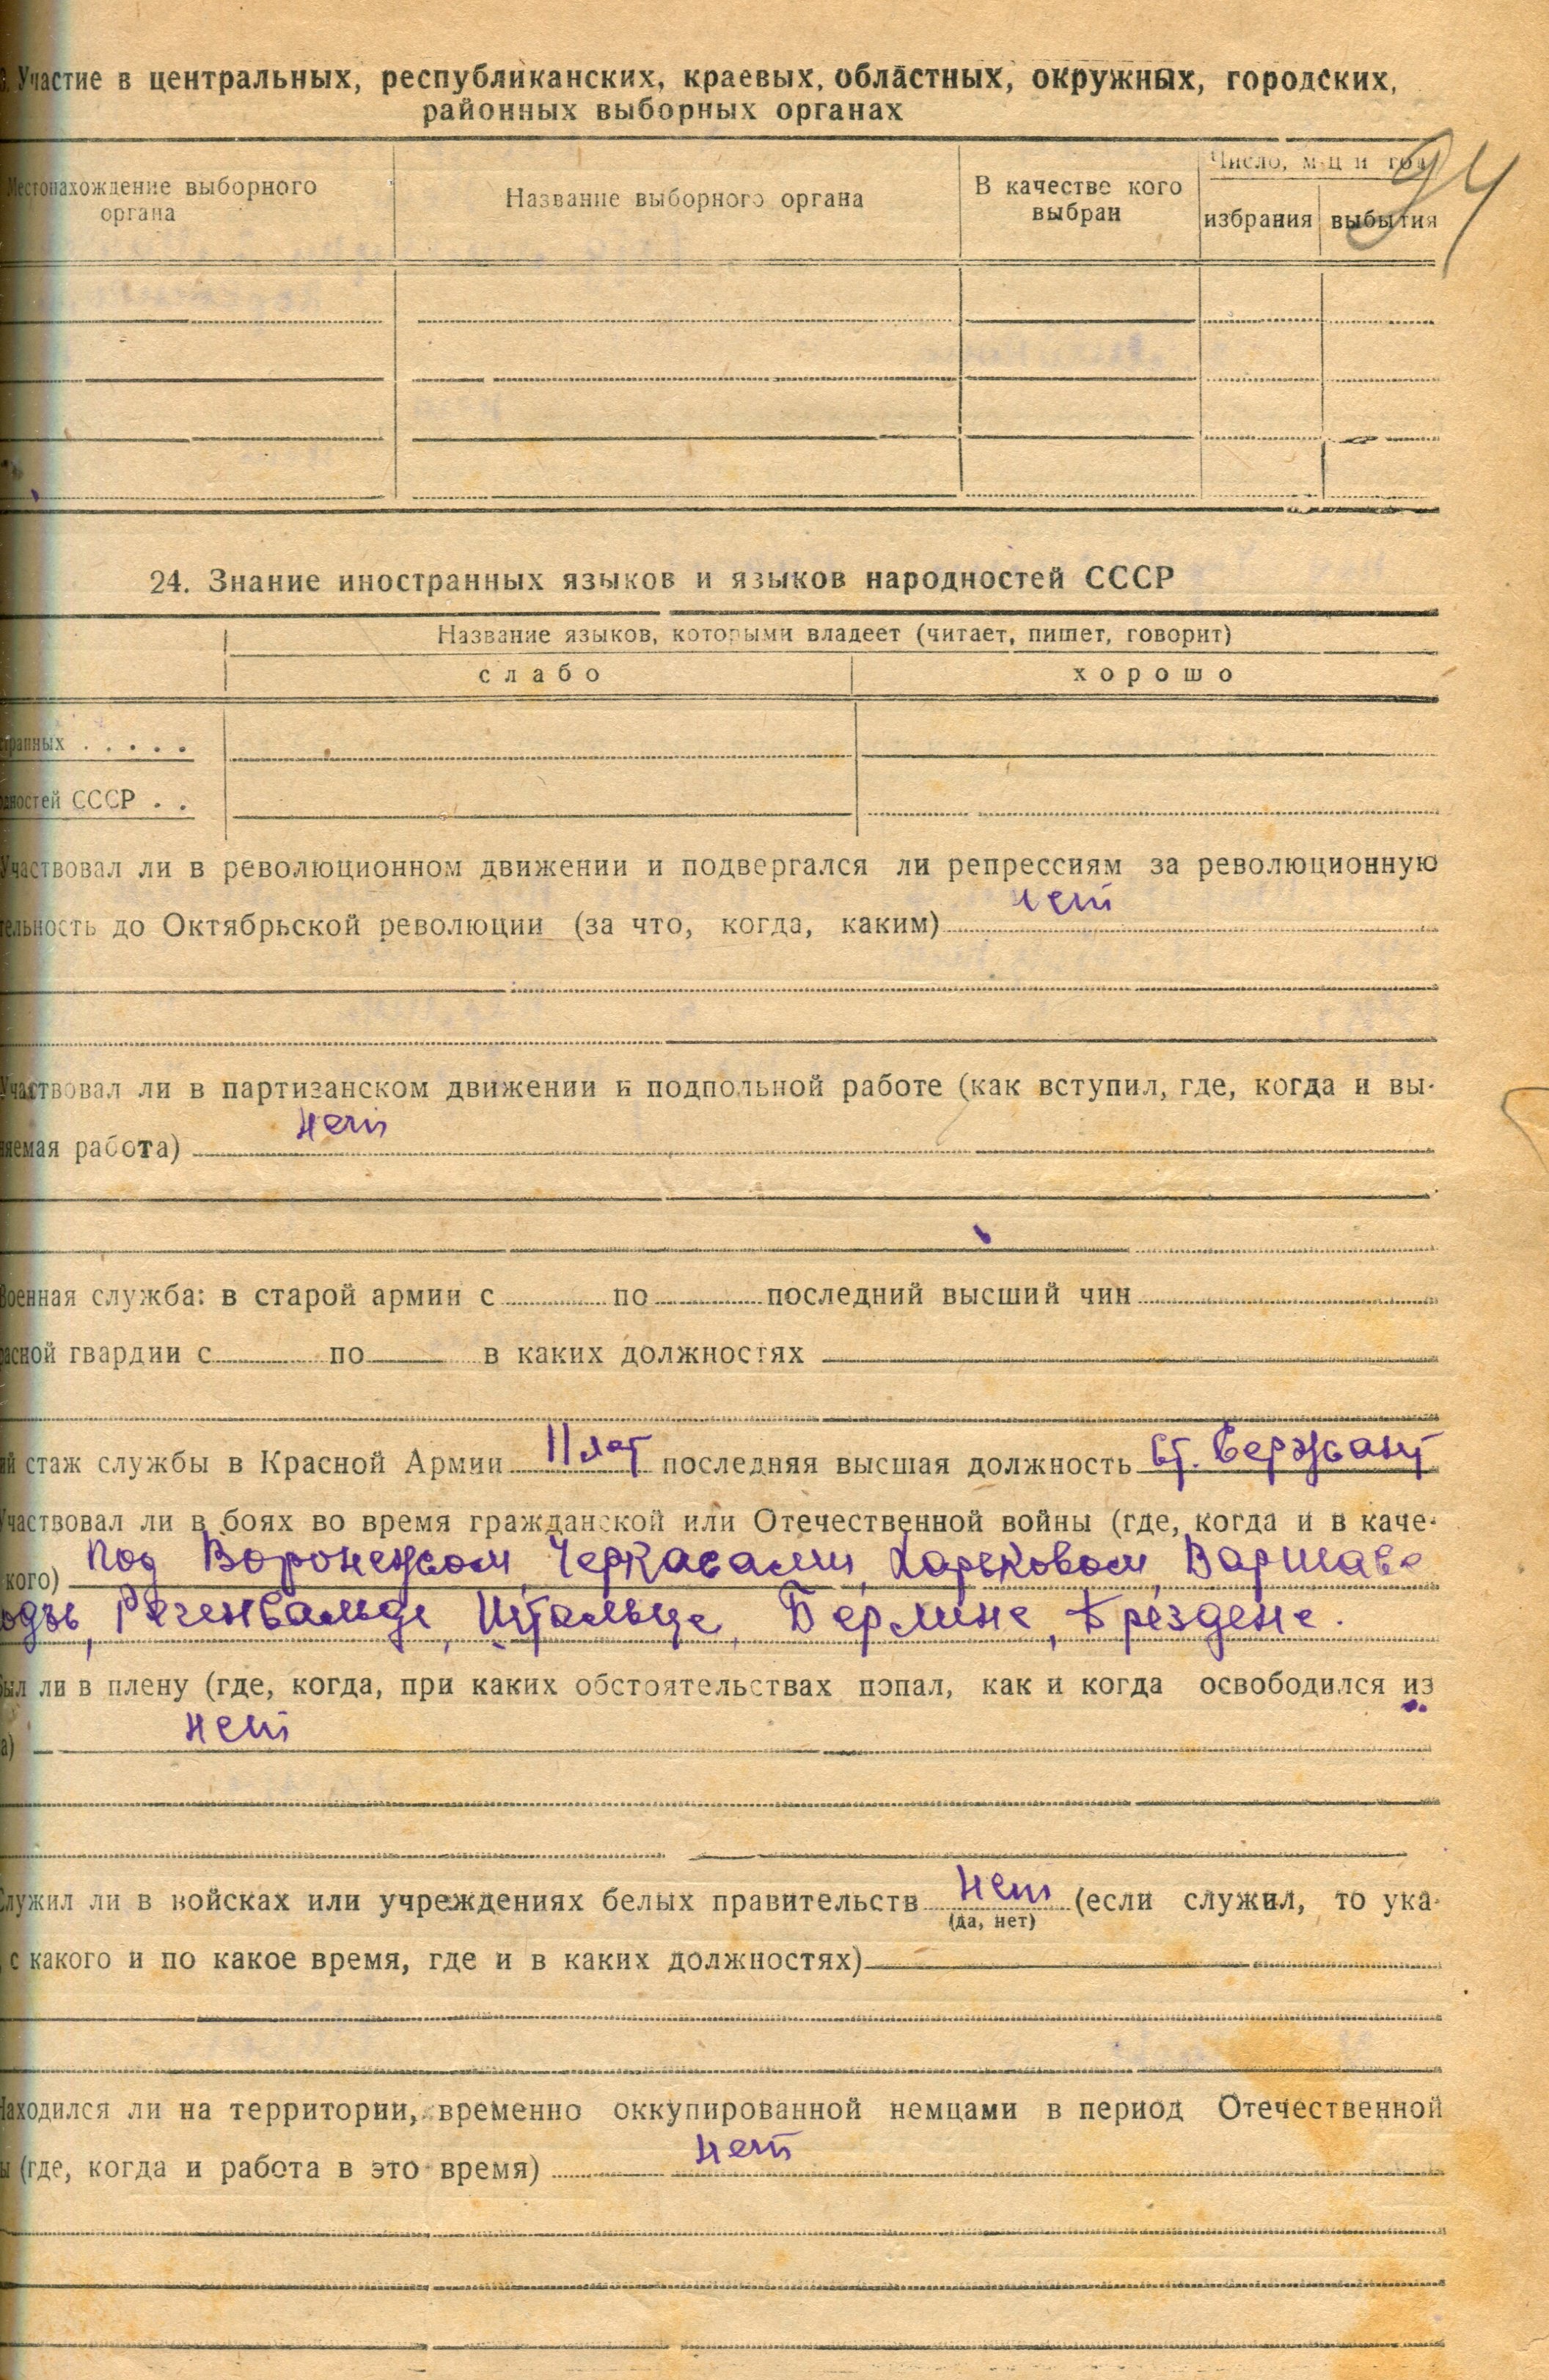 Участие в центральных, республиканских, краевых, областных, окружных, городских,
районных выборных органах
94
Местонахождение выборного органа
Название выборного органа
В качестве кого выбран
Число, м-ц и год
избрания
выбытия
24. Знание иностранных языков и языков народностей СССР
Название языков, которыми владеет (читает, пишет, говорит)
слабо
хорошо
странных . . . . .
ностей СССР . .
Участвовал ли в революционном движении и подвергался ли репрессиям за революционную
тельность до Октябрьской революции (за что, когда, каким) нет
Участвовал ли в партизанском движении и подпольной работе (как вступил, где, когда и вы-
няемая работа) нет
Военная служба: в старой армии с по последний высший чин
расной гвардии с по в каких должностях
ий стаж службы в Красной Армии 11 лет последняя высшая должность Ст. Сержант
Участвовал ли в боях во время гражданской или Отечественной войны (где, когда и в каче-
кого) Под Воронежом, Черкасами, Харьковом, Варшаве
одзь, Регенвальде, Штальце, Берлине, Дрездене.
был ли в плену (где, когда, при каких обстоятельствах попал, как и когда освободился из
а) нет
Служил ли в войсках или учреждениях белых правительств нет (если служил, то ука-
(да, нет)
с какого и по какое время, где и в каких должностях)
Находился ли на территории, временно оккупированной немцами в период Отечественной
ы (где, когда и работа в это время) нет